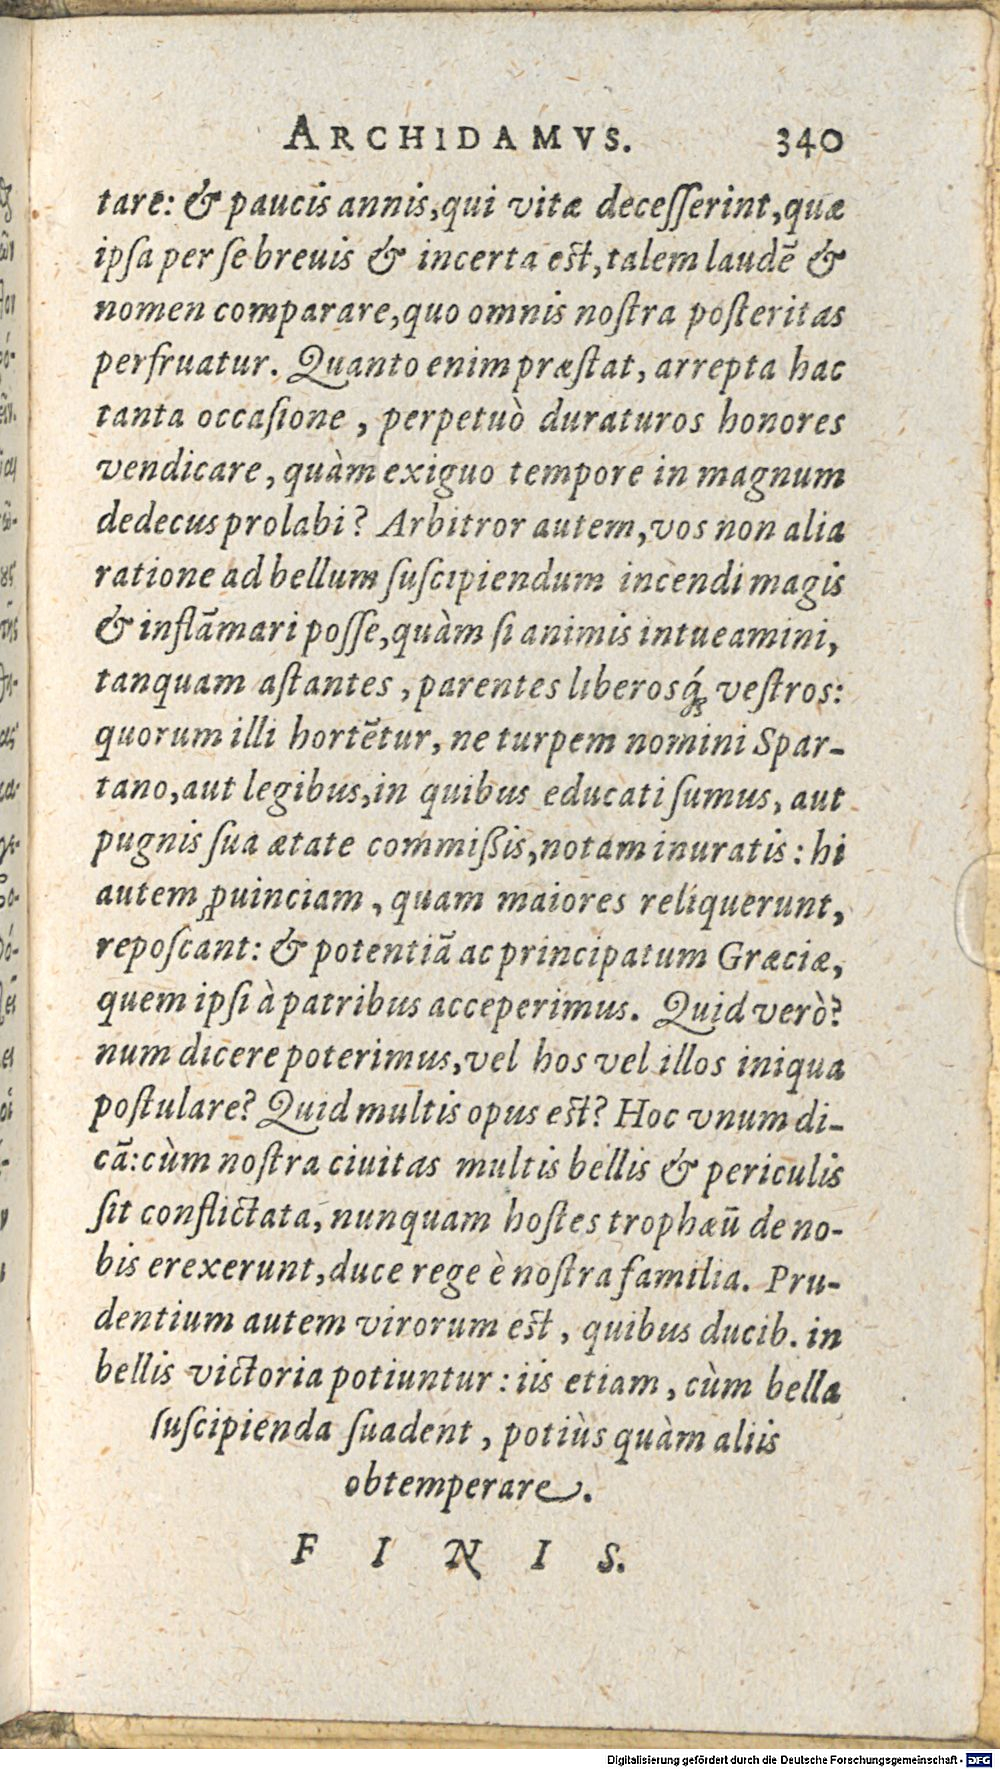 ARCHIDAMVS. 340
tare: & paucis annis, qui vitæ decesserint, quæ
ipsa per se breuis & incerta est, talem laudē &
nomen comparare, quo omnis nostra posteritas
perfruatur. Quanto enim præstat, arrepta hac
tanta occasione, perpetuò duraturos honores
vendicare, quàm exiguo tempore in magnum
dedecus prolabi? Arbitror autem, vos non alia
ratione ad bellum suscipiendum incendi magis
& inflāmari posse, quàm si animis intueamini,
tanquam astantes, parentes liberosq́; vestros:
quorum illi hortētur, ne turpem nomini Spar-
tano, aut legibus, in quibus educati sumus, aut
pugnis sua ætate commißis, notam inuratis: hi
autem ꝓuinciam, quam maiores reliquerunt,
reposcant: & potentiā ac principatum Græciæ,
quem ipsi à patribus acceperimus. Quid verò?
num dicere poterimus, vel hos vel illos iniqua
postulare? Quid multis opus est? Hoc vnum di-
cā: cùm nostra ciuitas multis bellis & periculis
sit conflictata, nunquam hostes trophæū de no-
bis erexerunt, duce rege è nostra familia. Pru-
dentium autem virorum est, quibus ducib. in
bellis victoria potiuntur: iis etiam, cùm bella
suscipienda suadent, potiùs quàm aliis
obtemperare.
F I N I S.
Digitalisierung gefördert durch die Deutsche Forschungsgemeinschaft - DFG